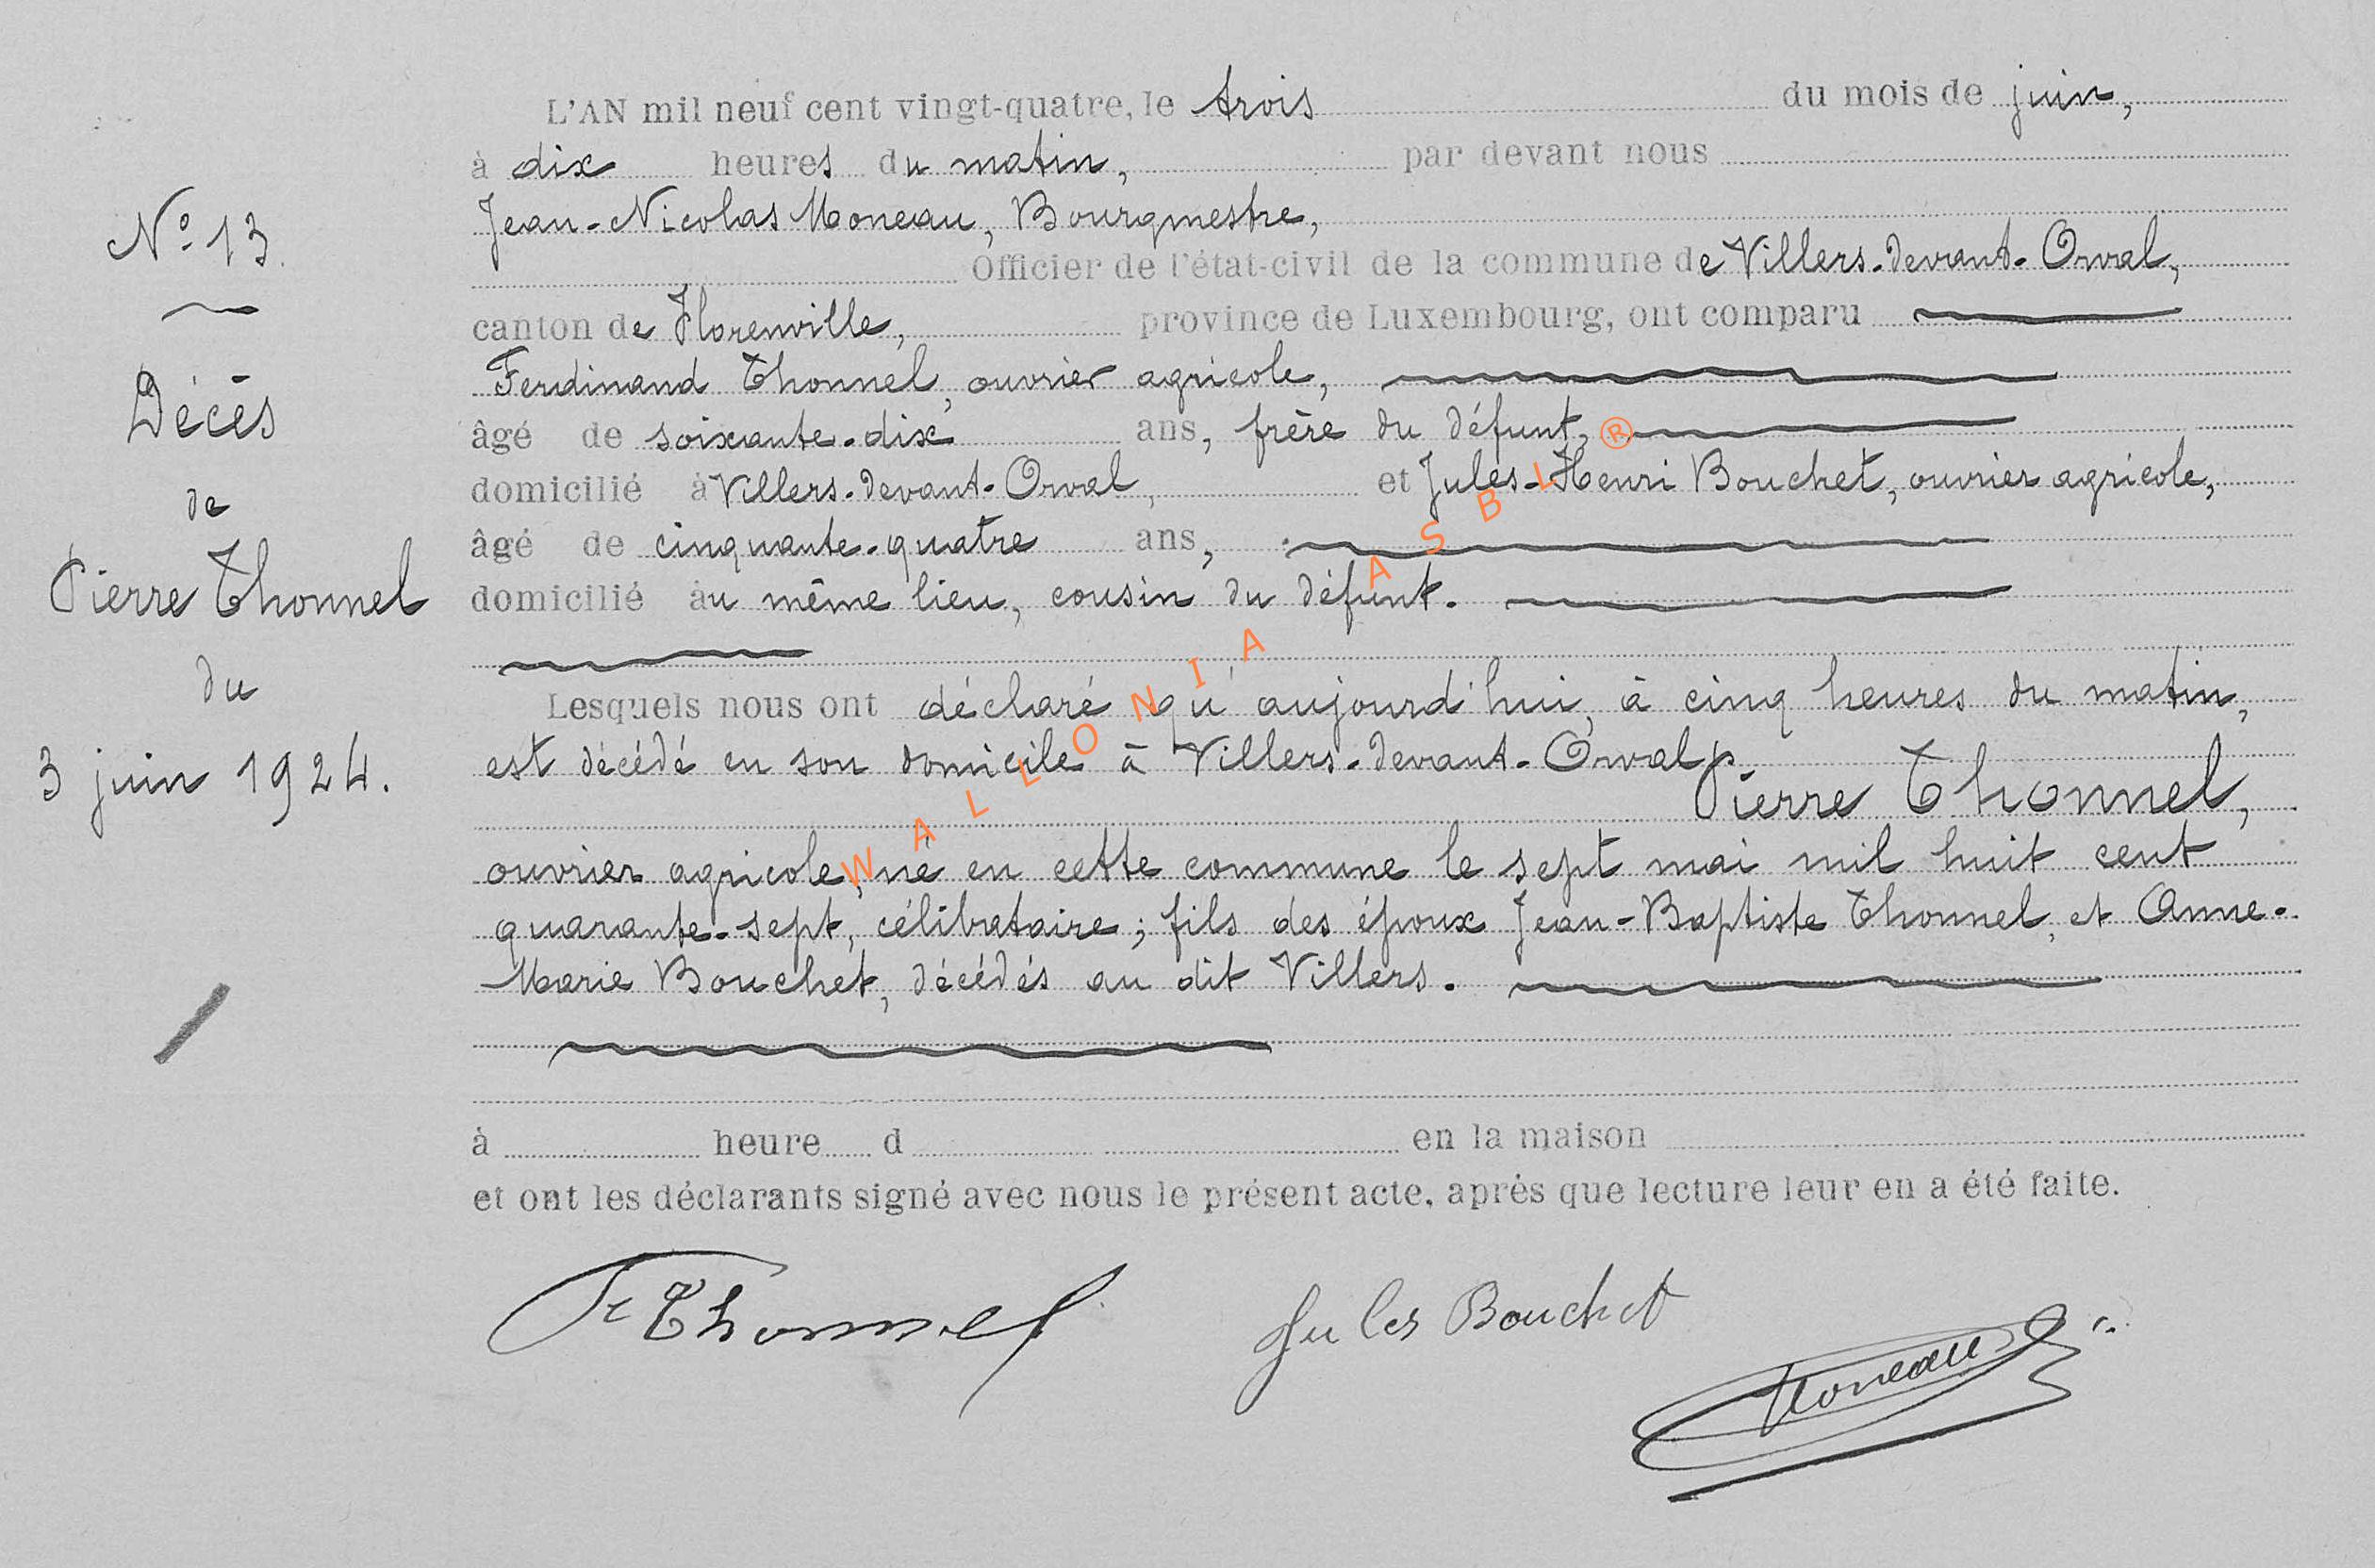 L'AN mil neuf cent vingt-quatre, le trois du mois de juin,
à dix heures du matin, par devant nous
Jean-Nicolas Moneau, Bourgmestre,
Officier de l'état-civil de la commune de Villers-devant-Orval,
canton de Florenville, province de Luxembourg, ont comparu
Ferdinand Thonnel, ouvrier agricole,
âgé de soixante-dix ans, frère du défunt,
domicilié à Villers-devant-Orval, et Jules-Henri Bouchet, ouvrier agricole,
âgé de cinquante-quatre ans,
domicilié au même lieu, cousin du défunt.
Lesquels nous ont déclaré qu'aujourd'hui, à cinq heures du matin,
est décédé en son domicile à Villers-devant-Orval
Pierre Thonnel,
ouvrier agricole, né en cette commune le sept mai mil huit cent
quarante-sept, célibataire ; fils des époux Jean-Baptiste Thonnel, et Anne-
Marie Bouchet, décédés au dit Villers.
à heure d en la maison
et ont les déclarants signé avec nous le présent acte, après que lecture leur en a été faite.
N° 13.
Décès
de
Pierre Thonnel
du
3 juin 1924.
F Thonnel
Jules Bouchet
Moneau
WALLONIA ASBL ®